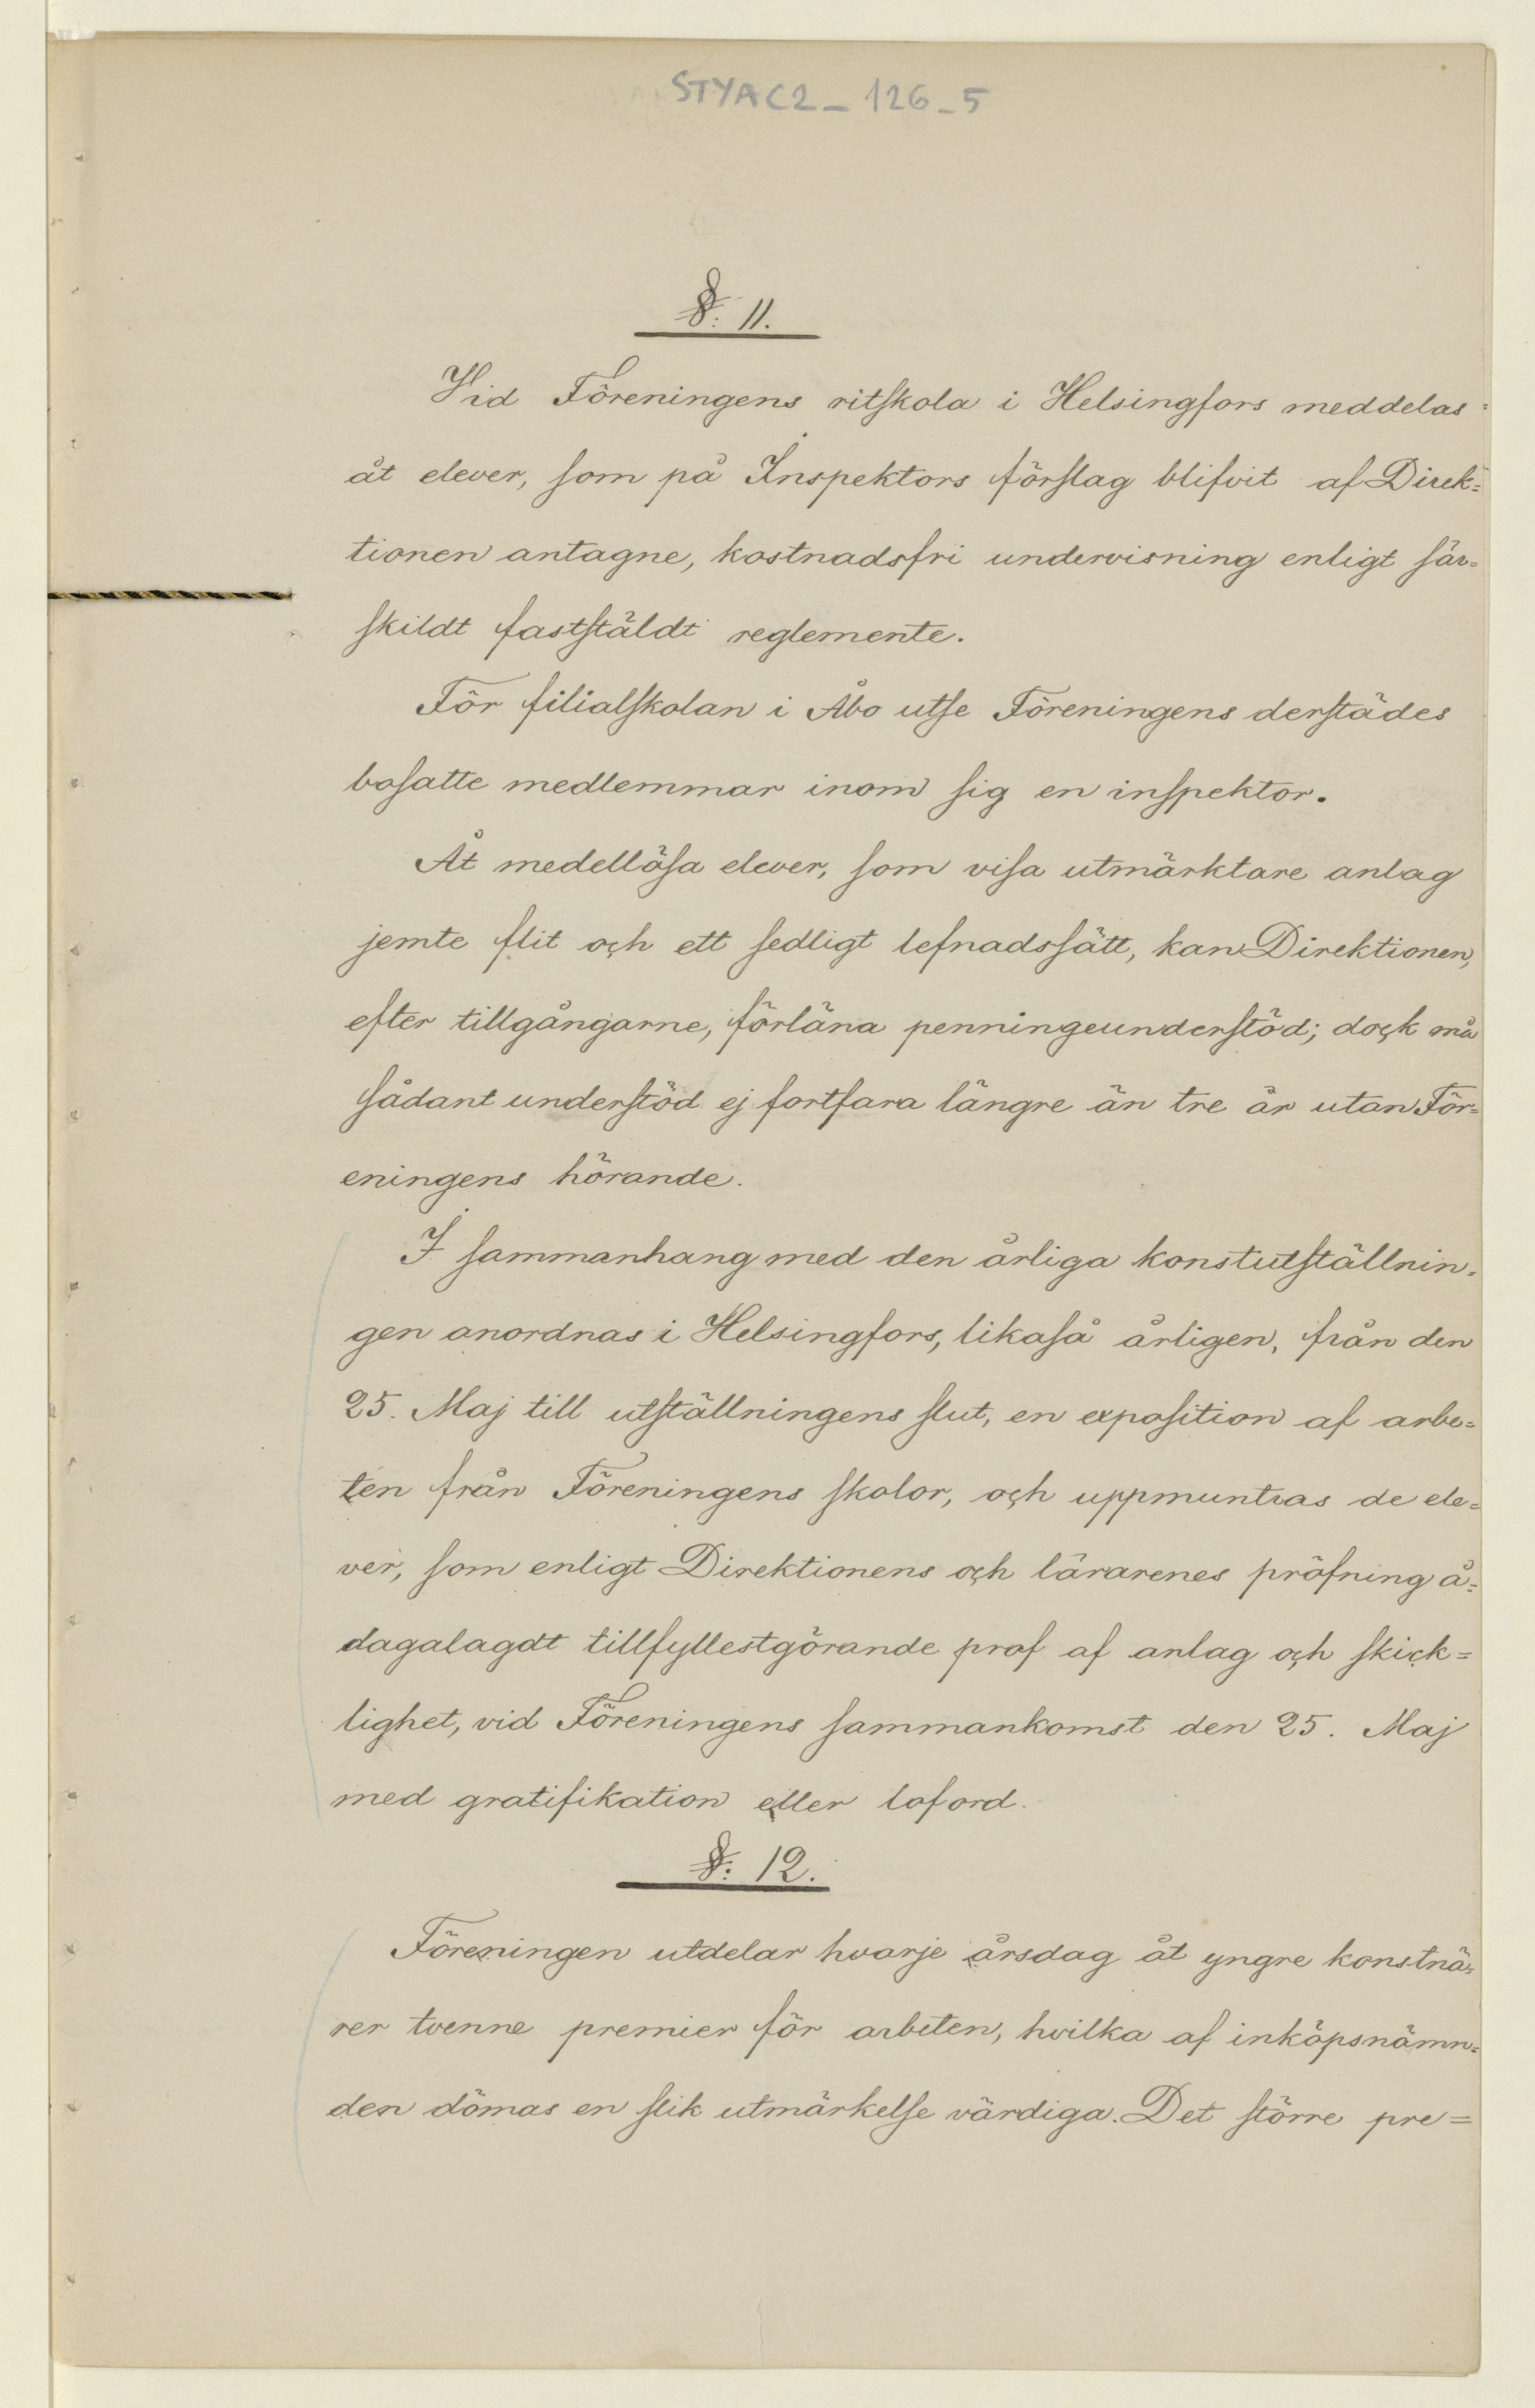 STYAC2_126_5
§: 11.
Vid Föreningens ritskola i Helsingfors meddelas
åt elever, som på Inspektors förslag blifvit af Direk=
tionen antagne, kostnadsfri undervisning enligt sär=
skildt fastställdt reglemente.
För filialskolan i Åbo utse Föreningens derstädes
bosatte medlemmar inom sig en inspektor.
Åt medellösa elever, som visa utmärktare anlag
jemte flit och ett sedligt lefnadssätt, kan Direktionen,
efter tillgångarne, förläna penningeunderstöd; dock må
sådant understöd ej fortfara längre än tre år utan För=
eningens hörande.
I sammanhang med den årliga konstutställnin=
gen anordnas i Helsingfors, likaså årligen, från den
25. Maj till utställningens slut, en exposition af arbe=
ten från Föreningens skolor, och uppmuntras de ele=
ver, som enligt Direktionens och lärarenes pröfning å=
dagalagdt tillfyllestgörande prof af anlag och skick=
lighet, vid Föreningens sammankomst den 25. Maj
med gratifikation eller loford.
§: 12.
Föreningen utdelar hvarje årsdag åt yngre konstnä=
rer tvenne premier för arbeten, hvilka af inköpsnämn=
den dömas en slik utmärkelse värdiga. Det större pre=